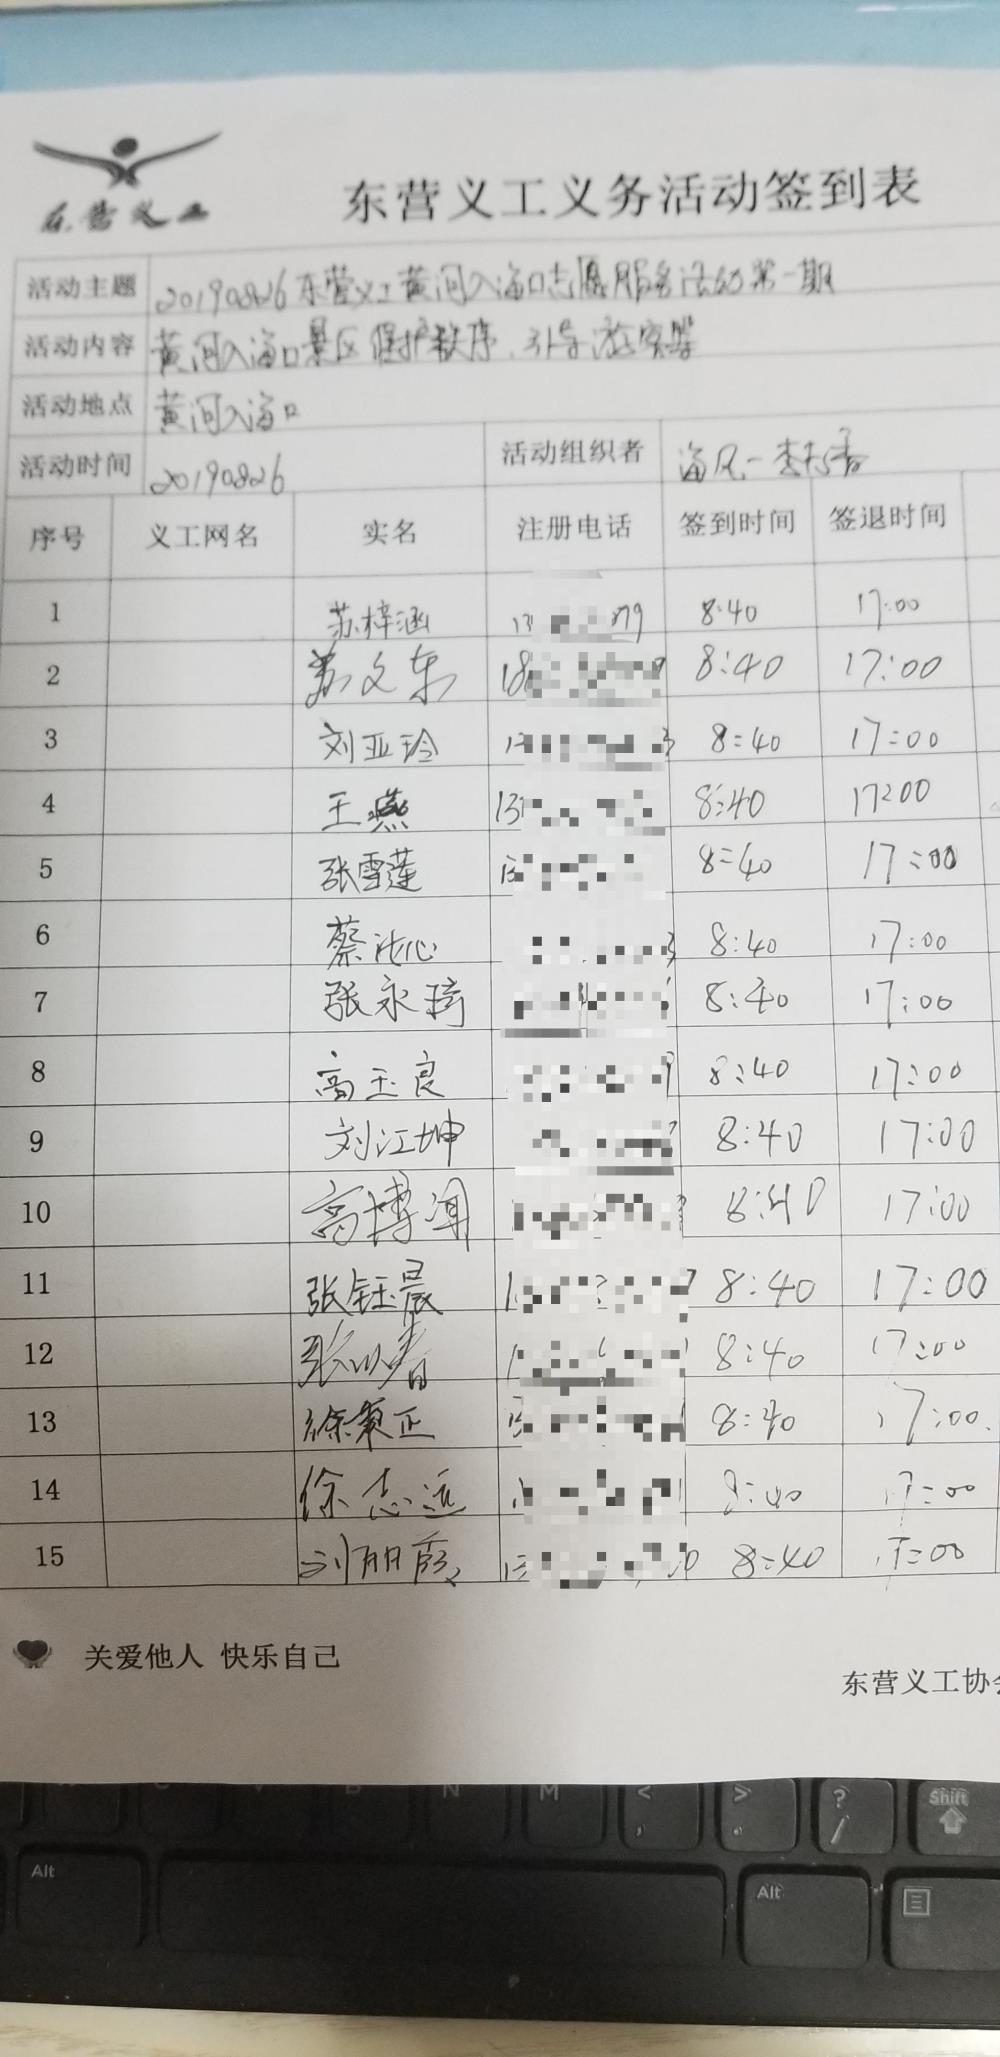 东营义工
东营义工义务活动签到表
活动主题 20190826东营义工黄河入海口志愿服务活动第一期
活动内容 黄河入海口景区保护秩序、引导游客等
活动地点 黄河入海口
活动时间 20190826 活动组织者 海风-李秀香
序号 义工网名 实名 注册电话 签到时间 签退时间
1 苏梓涵 8:40 17:00
2 苏文东 18 8:40 17:00
3 刘亚玲 8:40 17:00
4 王燕 13 8:40 17:00
5 张雪莲 13 8:40 17:00
6 蔡沁心 8:40 17:00
7 张永琦 8:40 17:00
8 高玉良 8:40 17:00
9 刘江坤 8:40 17:00
10 高博闻 8:40 17:00
11 张钰晨 8:40 17:00
12 张 8:40 17:00
13 徐秉正 8:40 17:00
14 徐志远 8:40 17:00
15 刘丽霞 8:40 17:00
关爱他人 快乐自己
东营义工协会
N M < , > . ? / Shift
Alt Alt